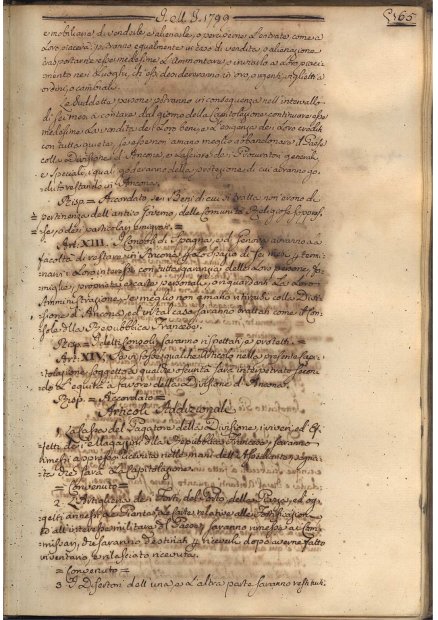 J. M. J. 1799
165
e mobiliare di venderle, e alienarle, o percipirne l'entrate come a
loro piacerà; potranno egualmente in caso di vendita, o alienazione
trasportare esse medesime l'ammontare, o inviarlo a loro piaci-
mento nei luoghi, che desidereranno in oro, argenti, viglietti a
ordini, o cambiali.
Le suddette persone potranno in conseguenza nell'intervallo
di sei mesi a contare dal giorno della Capitolazione continuare esse
medesime la vendita dei loro beni, e l'esigenza dei loro crediti
con tutta quiete, se esse non amano meglio abbandonare il Paese
colla Divisione d'Ancona, e lasciare dei Procuratori generali,
e speciali, i quali goderanno della protezione di cui avranno go-
duto restando in Ancona.
Risp. = Accordato se i Beni di cui si tratta non erano di
pertinenza dell'antico Governo, delle Comunità Religiose soppres-
se, o dei particolari emigrati. =
Art. XIII. I Consoli di Spagna, e di Genova avranno la
facoltà di restare in Ancona per lo spazio di sei mesi, per termi-
narvi i loro interessi con tutta garanzia delle loro persone, fa-
miglie, proprietà, e casse personali, o riguardanti la loro
Amministrazione, se meglio non amano ritirarsi colla Divi-
sione d'Ancona, ed in tal caso saranno trattati come il Con-
sole della Repubblica Francese.
Risp. I detti Consoli saranno rispettati, e protetti. =
Art. XIV. Se vi fosse qualche Articolo nella presente Capi-
tolazione soggetto a qualche oscurità sarà interpretato secon-
do l'equità a favore della Divisione d'Ancona.
Risp. = Accordato =
Articoli Addizionali
1. La Cassa del Pagatore della Divisione, i viveri, ed ef-
fetti dei Magazzini della Repubblica Francese saranno
rimessi appresso ricevuta nelle mani dell'
te che sarà la Capitolazione.
= Convenuto =
2. L'Artiglieria dei Forti, del Porto, della Piazza, ed og-
getti annessi, le Piante, le Carte relative alle Fortificazioni
o all'interesse militare di Paesi, saranno rimesse ai Com-
missarj, che saranno destinati a riceverle dopo averne fatto
inventario, e rilasciato ricevuta.
= Convenuto =
3. I Disertori dell'una, e l'altra parte saranno restitui-